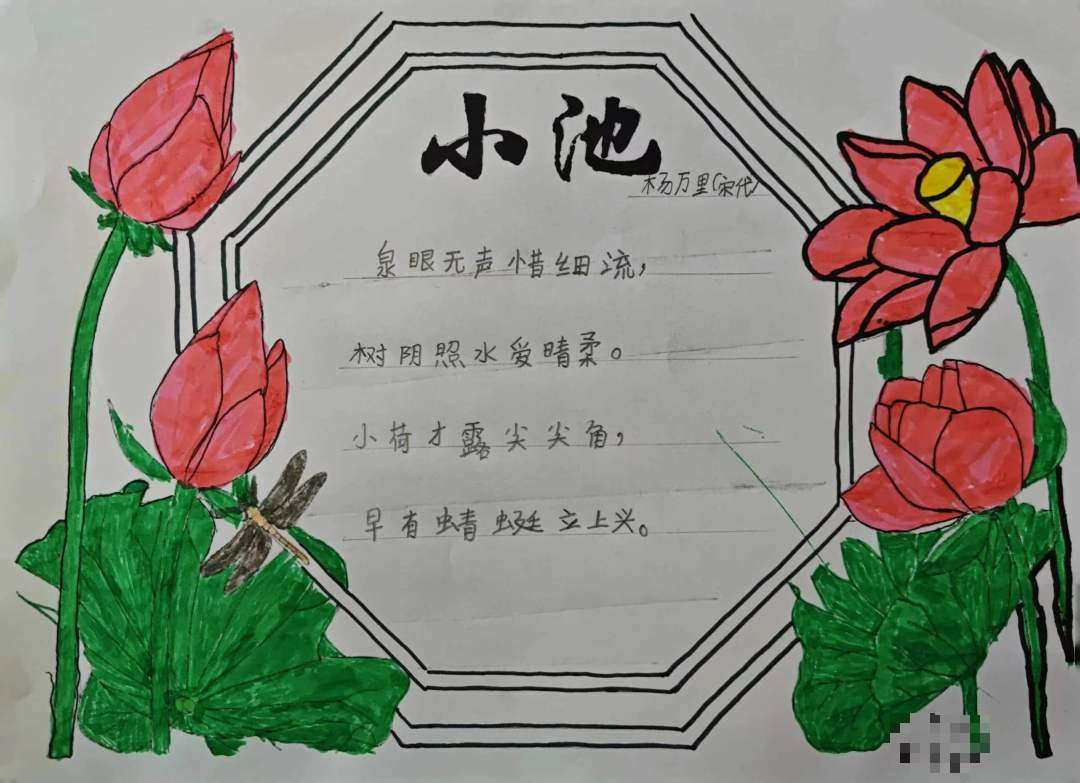 小池
杨万里(宋代)
泉眼无声惜细流，
树阴照水爱晴柔。
小荷才露尖尖角，
早有蜻蜓立上头。